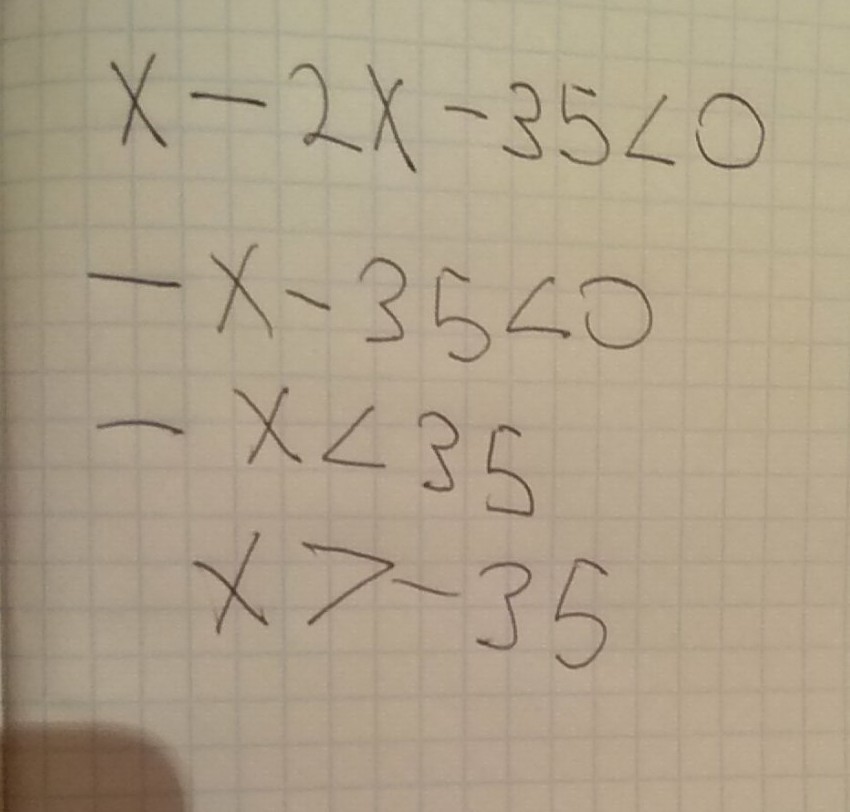 x - 2x - 35 < 0
- x - 35 < 0
- x < 35
x > - 35